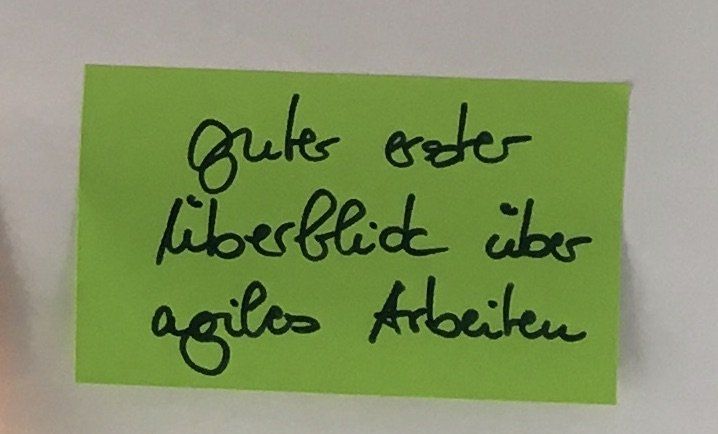 guter erster
Überblick über
agiles Arbeiten